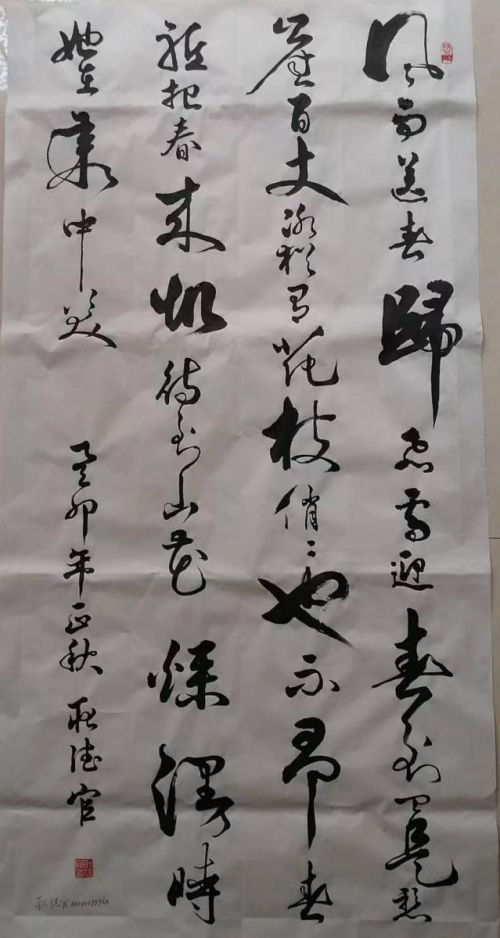 风雨送春歸飛雪迎春到已是悬
崖百丈冰猶有花枝俏〻也不争春
祗把春来报待到山花爛漫時
她在叢中笑 癸卯年正秋 耿德官